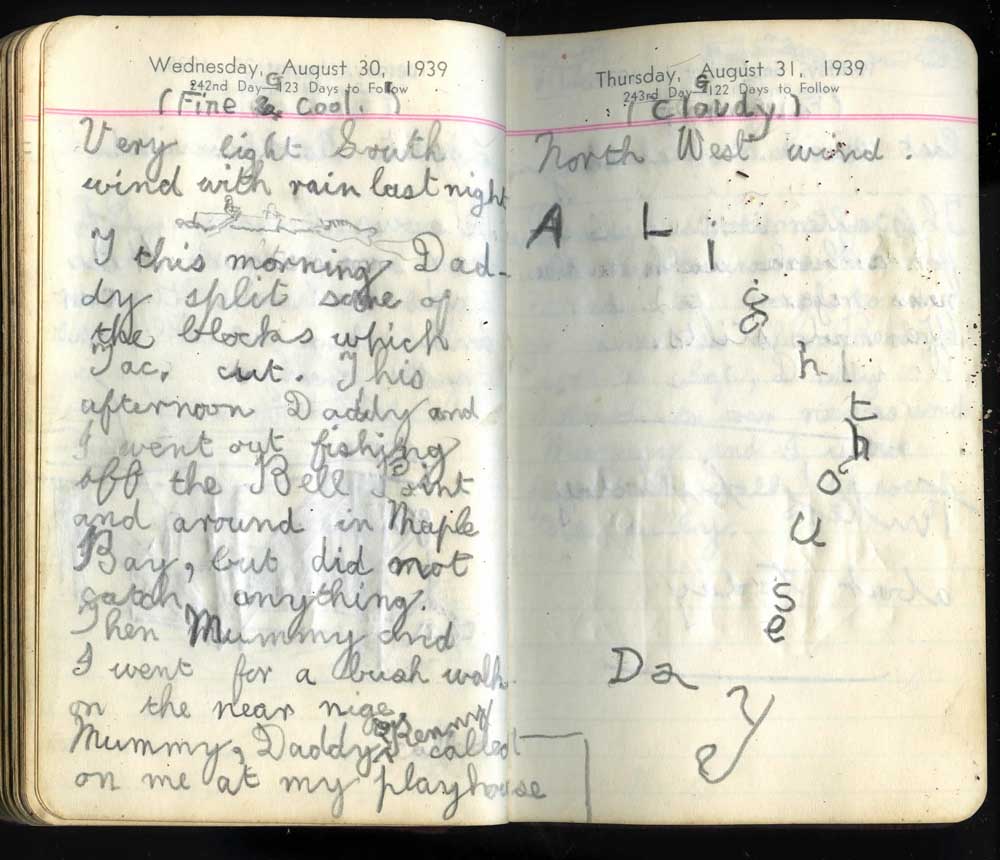 Wednesday, August 30, 1939
242nd Day—123 Days to Follow
(Fine & Cool.)
Very light South
wind with rain last night
I this morning Dad-
dy split some of
the blocks which
Jac, cut. This
afternoon Daddy and
I went out fishing
off the Bell Point
and around in Maple
Bay, but did not
catch anything.
Then Mummy and
I went for a bush walk
on the near nige
Mummy, Daddy & Kenny called
on me at my playhouse
Thursday, August 31, 1939
243rd Day—122 Days to Follow
(Cloudy)
North West wind.
A Light house Day